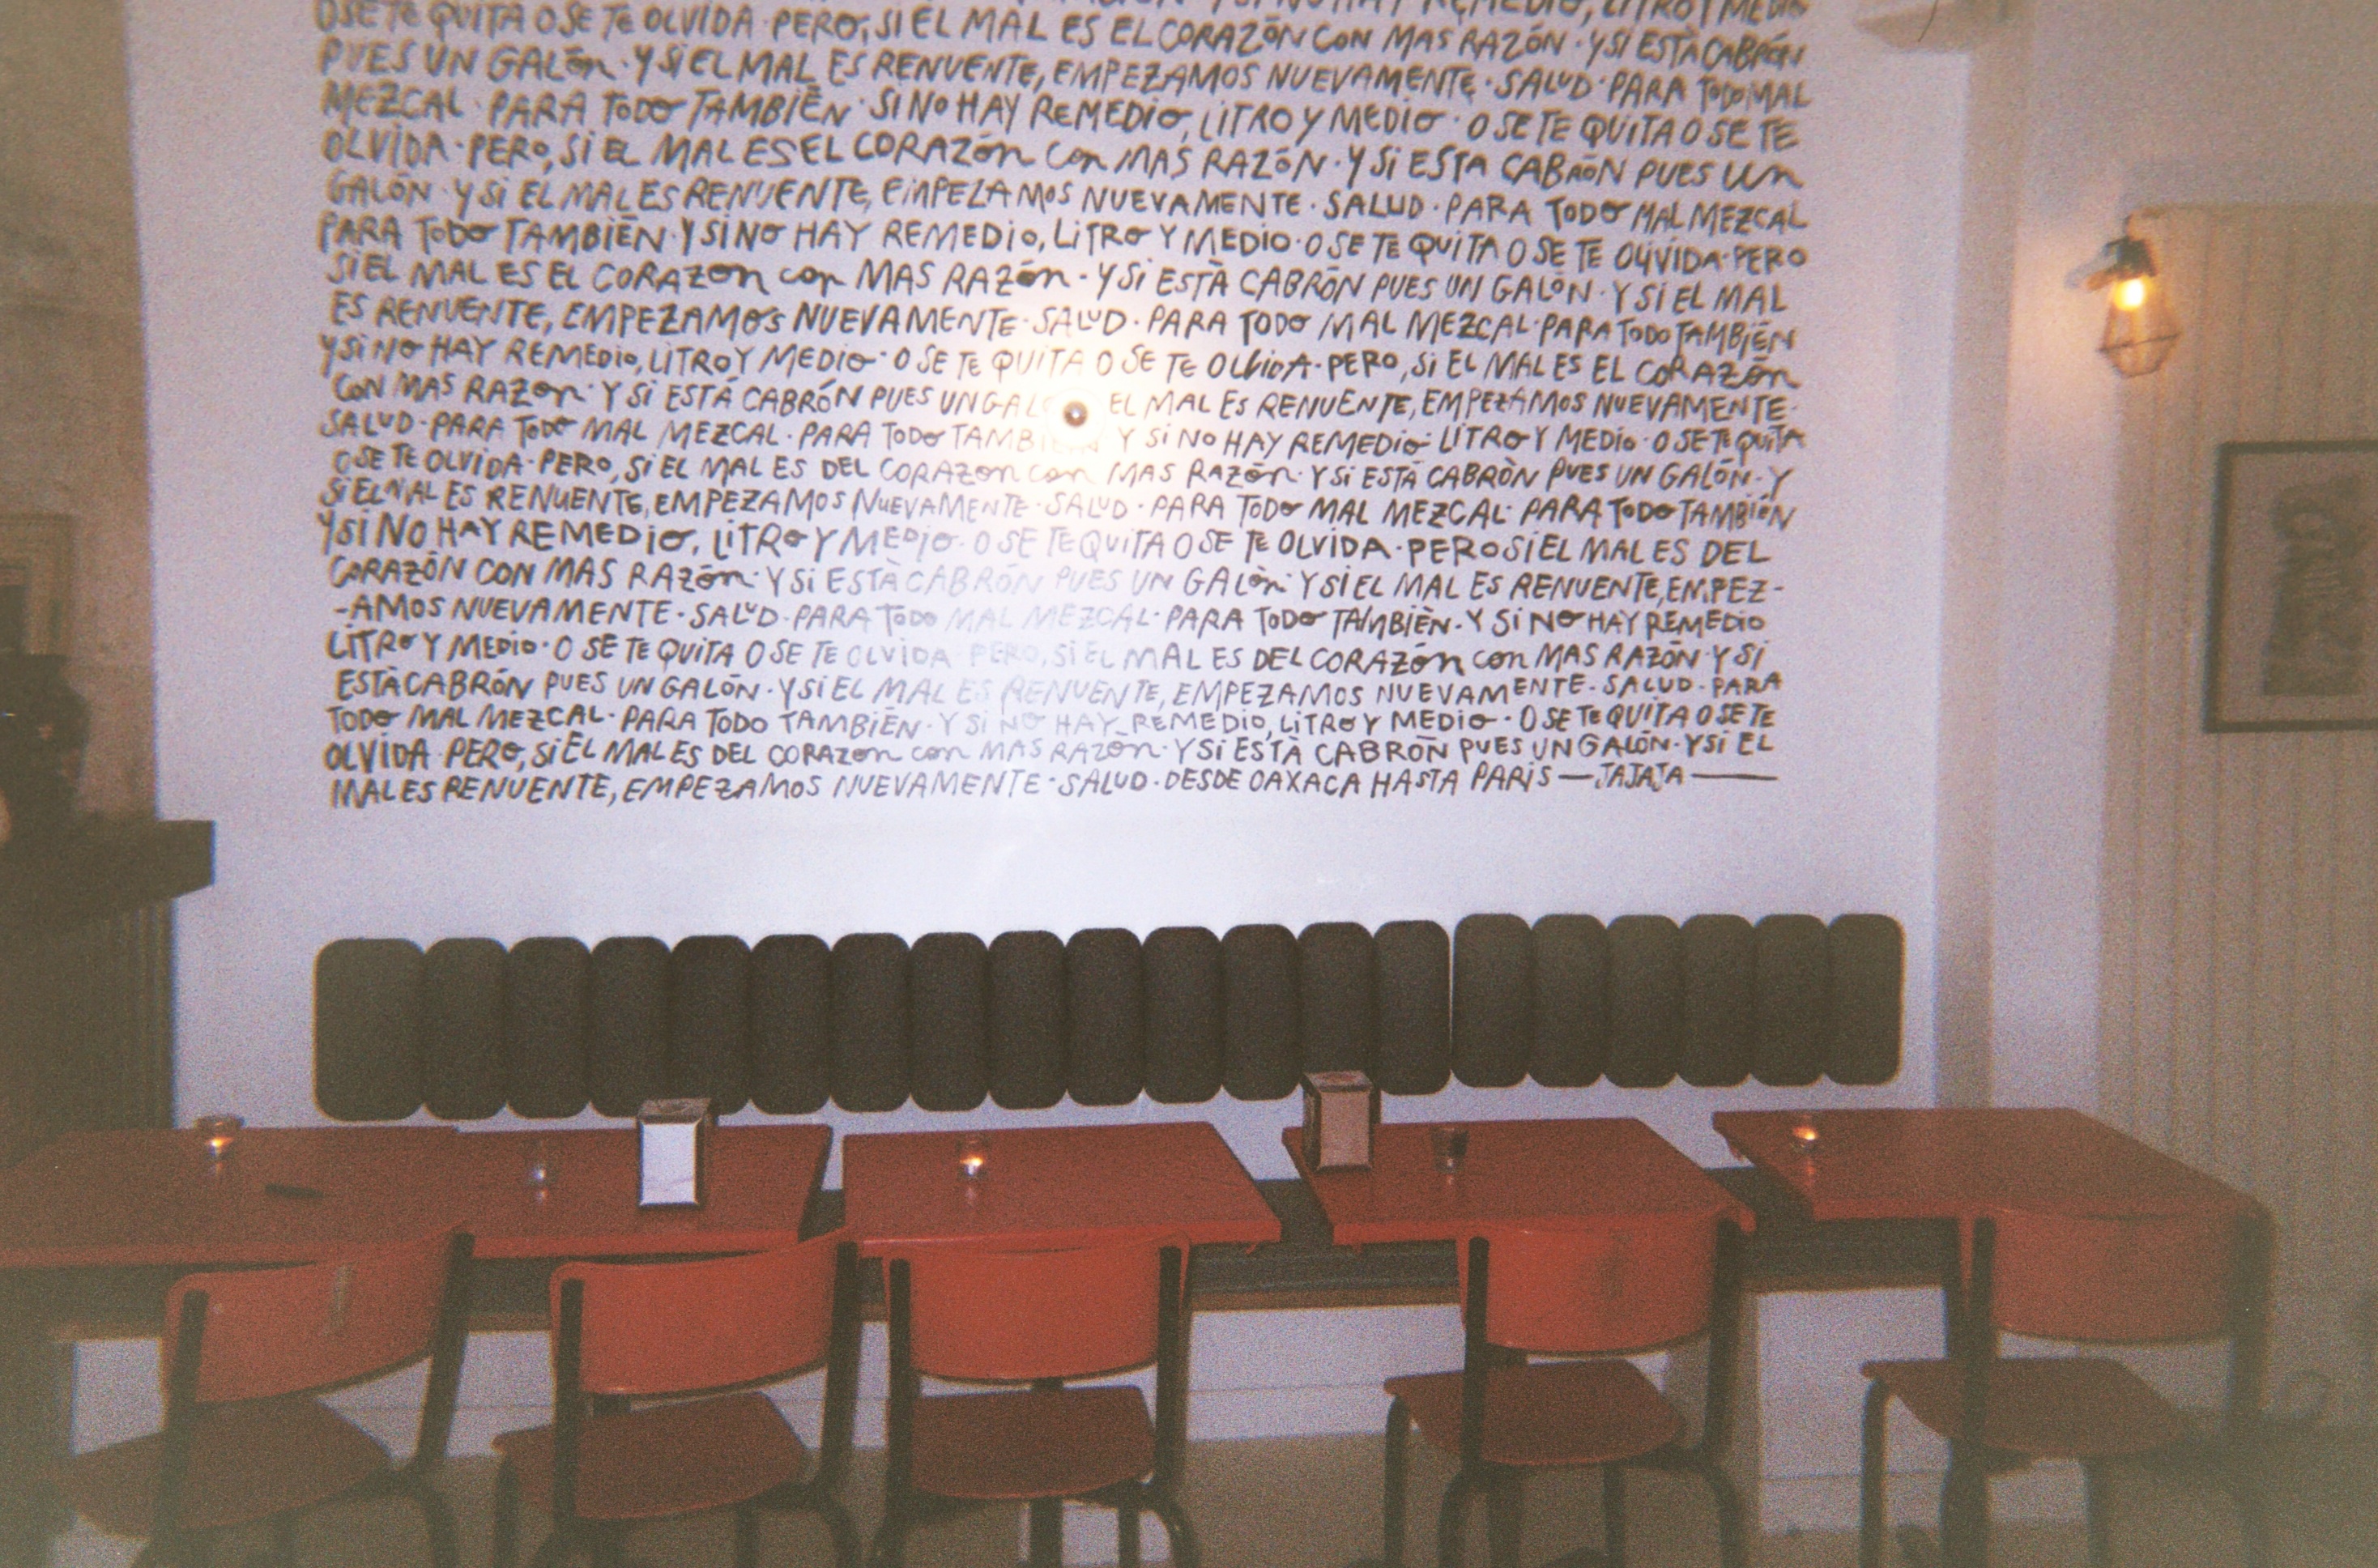 Y SI NO HAY REMEDIO, LITRO Y MEDIO
O SE TE QUITA O SE TE OLVIDA · PERO, SI EL MAL ES EL CORAZÓN CON MAS RAZÓN · Y SI ESTÀ CABRÓN
PUES UN GALÓN · Y SI EL MAL ES RENUENTE, EMPEZAMOS NUEVAMENTE · SALUD · PARA TODO MAL
MEZCAL · PARA TODO TAMBIÉN · SI NO HAY REMEDIO, LITRO Y MEDIO · O SE TE QUITA O SE TE
OLVIDA · PERO, SI EL MAL ES EL CORAZÓN CON MAS RAZÓN · Y SI ESTA CABRÓN PUES UN
GALÓN · Y SI EL MAL ES RENUENTE, EMPEZAMOS NUEVAMENTE · SALUD · PARA TODO MAL MEZCAL
PARA TODO TAMBIÉN · Y SI NO HAY REMEDIO, LITRO Y MEDIO · O SE TE QUITA O SE TE OLVIDA · PERO
SI EL MAL ES EL CORAZON CON MAS RAZÓN · Y SI ESTÀ CABRÓN PUES UN GALÓN · Y SI EL MAL
ES RENUENTE, EMPEZAMOS NUEVAMENTE · SALUD · PARA TODO MAL MEZCAL · PARA TODO TAMBIÉN
Y SI NO HAY REMEDIO, LITRO Y MEDIO · O SE TE QUITA O SE TE OLVIDA · PERO, SI EL MAL ES EL CORAZÓN
CON MAS RAZON · Y SI ESTÁ CABRÓN PUES UN GAL EL MAL ES RENUENTE, EMPEZAMOS NUEVAMENTE ·
SALUD · PARA TODO MAL MEZCAL · PARA TODO TAMBIÉN Y SI NO HAY REMEDIO · LITRO Y MEDIO · O SE TE QUITA
O SE TE OLVIDA · PERO, SI EL MAL ES DEL CORAZON CON MAS RAZÓN · Y SI ESTÀ CABRÒN PUES UN GALÓN · Y
SI EL MAL ES RENUENTE, EMPEZAMOS NUEVAMENTE · SALUD · PARA TODO MAL MEZCAL · PARA TODO TAMBIÉN
Y SI NO HAY REMEDIO, LITRO Y MEDIO · O SE TE QUITA O SE TE OLVIDA · PERO SI EL MAL ES DEL
CORAZÓN CON MAS RAZÓN · Y SI ESTÀ CABRÓN PUES UN GALÓN · Y SI EL MAL ES RENUENTE, EMPEZ-
-AMOS NUEVAMENTE · SALUD · PARA TODO MAL MEZCAL · PARA TODO TAMBIÈN · Y SI NO HAY REMEDIO
LITRO Y MEDIO · O SE TE QUITA O SE TE OLVIDA PERO, SI EL MAL ES DEL CORAZÓN CON MAS RAZÓN · Y SI
ESTÀ CABRÓN PUES UN GALÓN · Y SI EL MAL ES RENUENTE, EMPEZAMOS NUEVAMENTE · SALUD · PARA
TODO MAL MEZCAL · PARA TODO TAMBIÉN · Y SI NO HAY REMEDIO, LITRO Y MEDIO · O SE TE QUITA O SE TE
OLVIDA · PERO, SI EL MAL ES DEL CORAZON CON MAS RAZÓN · Y SI ESTÀ CABRÓN PUES UN GALÓN · Y SI EL
MAL ES RENUENTE, EMPEZAMOS NUEVAMENTE · SALUD · DESDE OAXACA HASTA PARIS — JAJAJA —